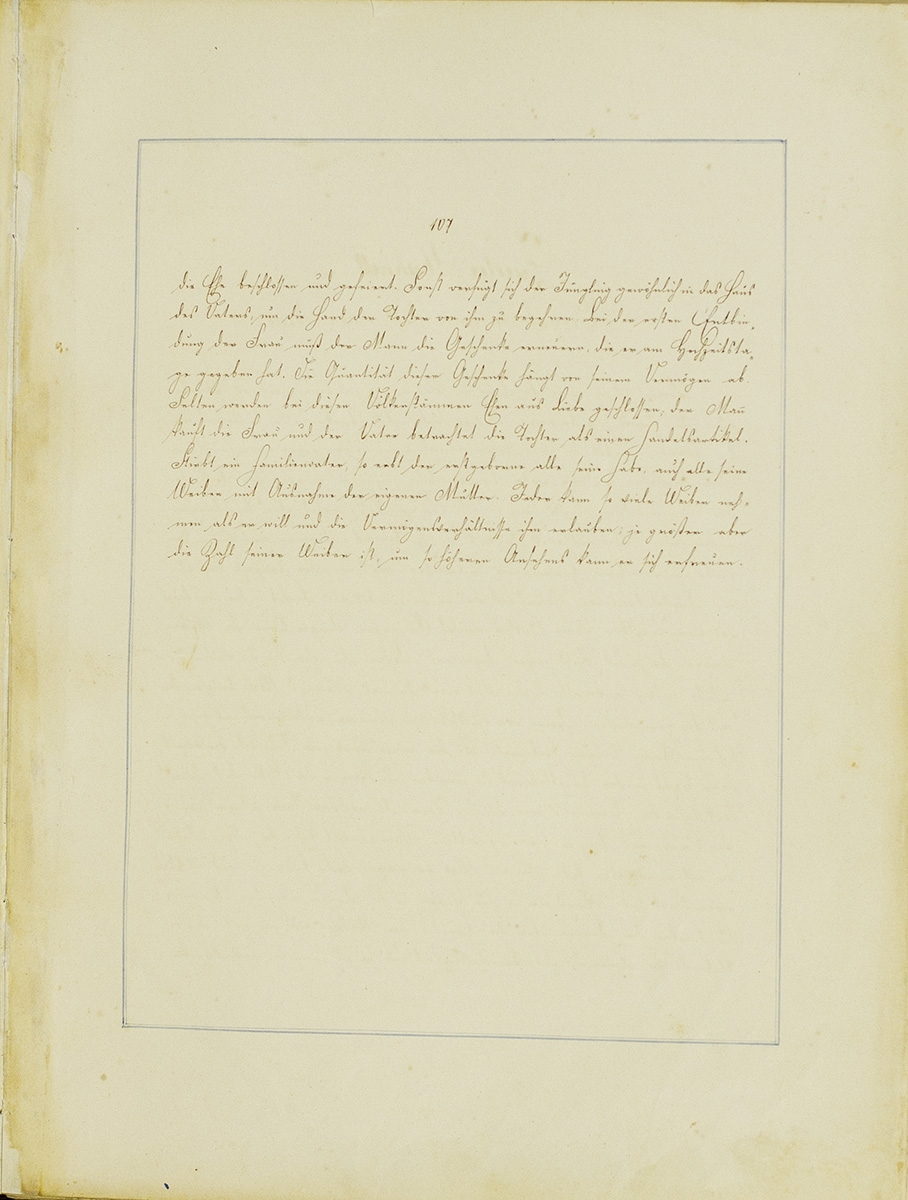 107
die Ehe beschlossen und gefeiert. Sonst verfügt sich der Jüngling gewöhnlich in das Haus
des Vaters, um die Hand der Tochter von ihm zu begehren. Bei der ersten Entbin„
dung der Frau muß der Mann die Geschenke erneuern, die er am Hochzeitsta„
ge gegeben hat. Die Quantität dieser Geschenke hängt von seinem Vermögen ab.
Selten werden bei diesen Völkerstämmen Ehen aus Liebe geschlossen; der Mann
kauft die Frau und der Vater betrachtet die Tochter als einen Handelsartikel.
Stirbt ein Familienvater, so erbt der erstgeborne alle seine Habe, auch alle seine
Weiber mit Ausnahme der eigenen Mutter. Jeder kann so viele Weiber neh„
men, als er will und die Vermögensverhältnisse ihm erlauben; je größer aber
die Zahl seiner Weiber ist, um so höheren Ansehens kann er sich erfreuen.